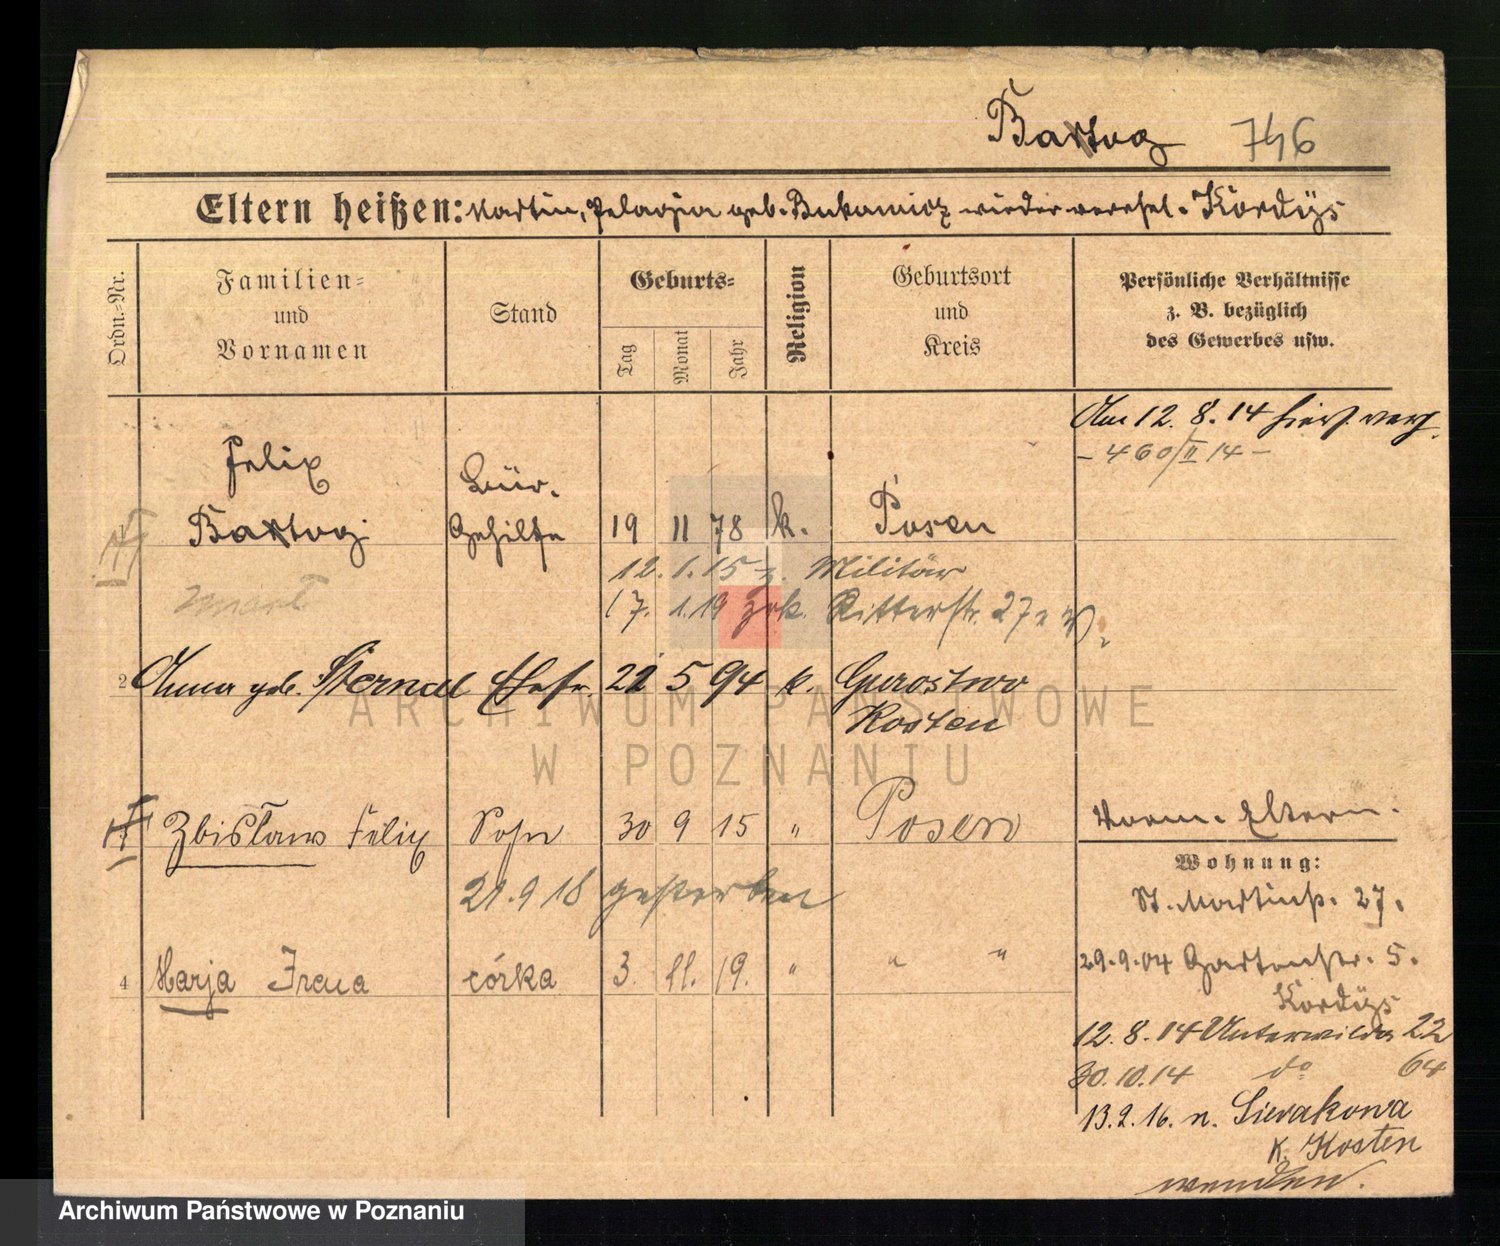 Bartog 746
Eltern heißen: Martin, Pelagia geb. Bukowicz wieder verehel. Kordÿs
Ordn.-Nr.
Familien- und Vornamen
Stand
Geburts-
Tag
Monat
Jahr
Religion
Geburtsort und Kreis
Persönliche Verhältnisse
z. B. bezüglich
des Gewerbes usw.
Am 12. 8. 14 hier verh.
- 460/II 14 -
Felix
Bartog Bür. Gehilfe 19 11 78 k. Posen
12. 1. 15 z. Militär
17. 1. 19 zrk. Ritterstr. 27
2 Anna geb. Sternal Ehefr. 21 5 94 k. Gurostwo
Kosten
Zbisław Felix Sohn 30 9 15 " Posen
21. 9 18 gestorben
4 Marja Irena córka 3. 11. 19. " " "
Vorm. Eltern.
Wohnung:
St. Martinstr. 27.
29.9.04 Gartenstr. 5.
Kordÿs
12. 8. 14 Unterwilda 22
30. 10. 14 do 64
13. 2. 16. n. Sierakowa
K. Kosten
wenden.
ARCHIWUM PAŃSTWOWE
W POZNANIU
Archiwum Państwowe w Poznaniu